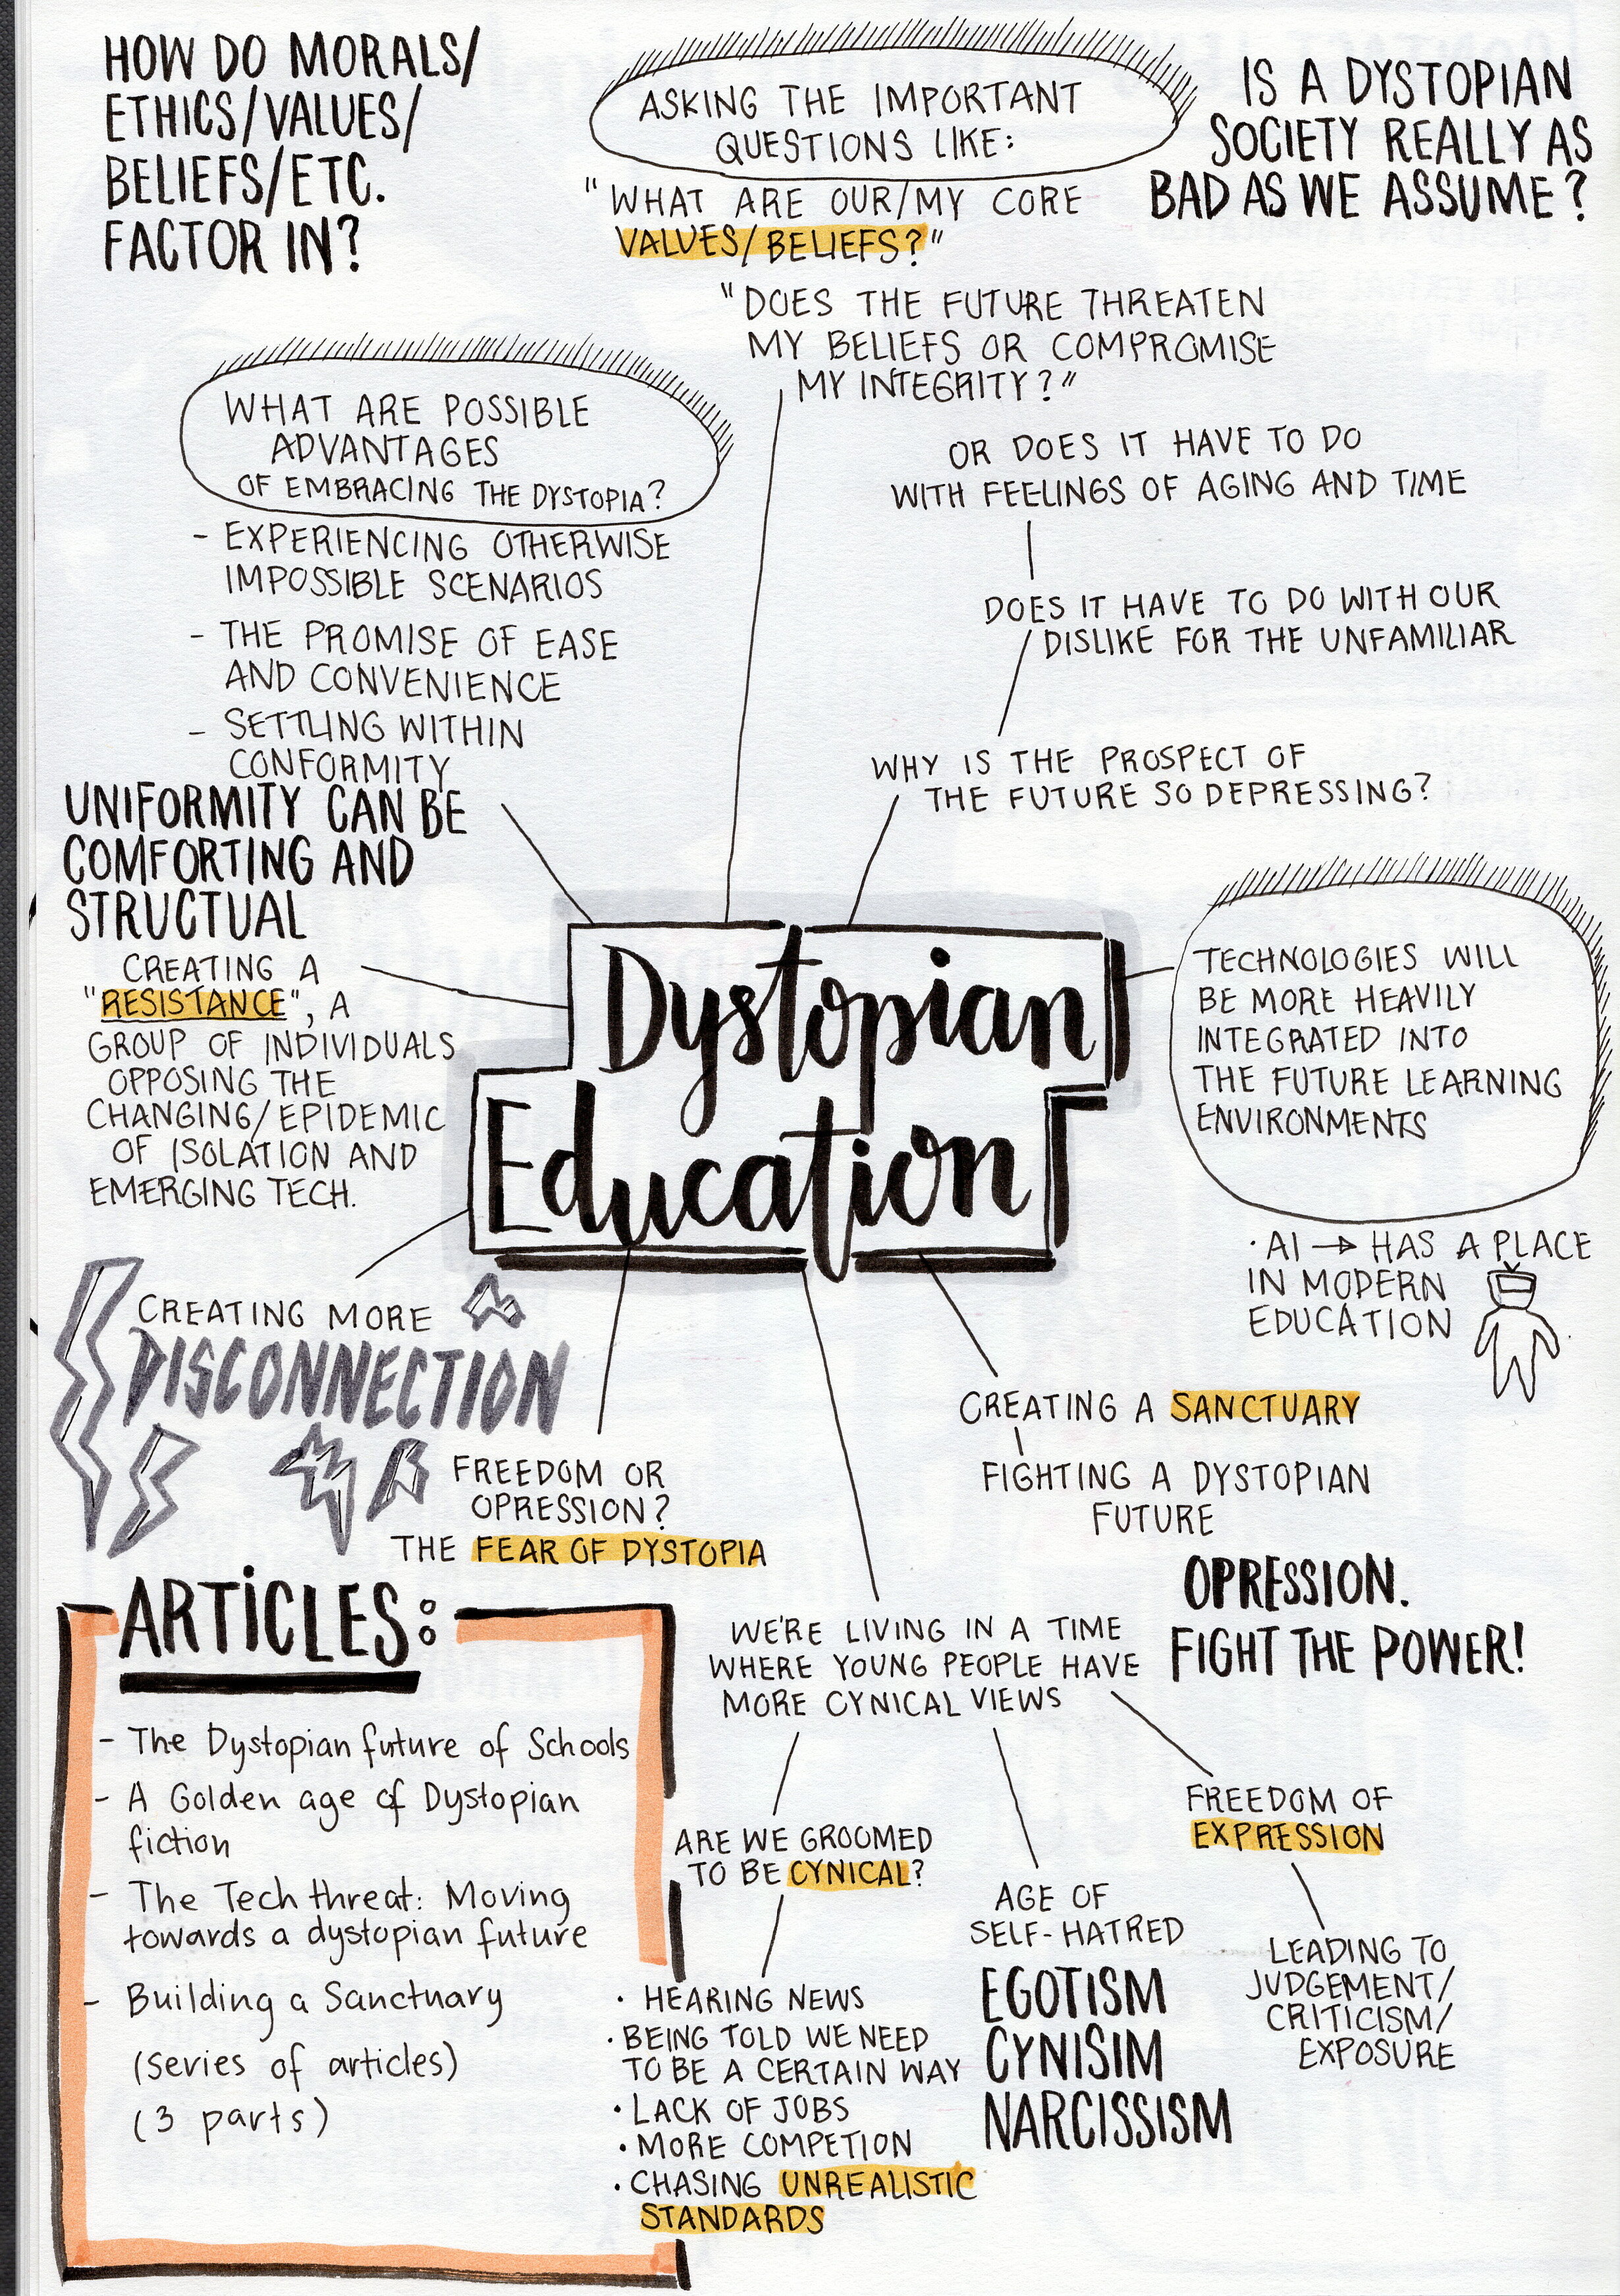 HOW DO MORALS/
ETHICS/VALUES/
BELIEFS/ETC.
FACTOR IN?
ASKING THE IMPORTANT
QUESTIONS LIKE:
"WHAT ARE OUR/MY CORE
VALUES/BELIEFS?"
"DOES THE FUTURE THREATEN
MY BELIEFS OR COMPROMISE
MY INTEGRITY?"
IS A DYSTOPIAN
SOCIETY REALLY AS
BAD AS WE ASSUME?
OR DOES IT HAVE TO DO
WITH FEELINGS OF AGING AND TIME
DOES IT HAVE TO DO WITH OUR
DISLIKE FOR THE UNFAMILIAR
WHY IS THE PROSPECT OF
THE FUTURE SO DEPRESSING?
WHAT ARE POSSIBLE
ADVANTAGES
OF EMBRACING THE DYSTOPIA?
- EXPERIENCING OTHERWISE
IMPOSSIBLE SCENARIOS
- THE PROMISE OF EASE
AND CONVENIENCE
- SETTLING WITHIN
CONFORMITY
UNIFORMITY CAN BE
COMFORTING AND
STRUCTUAL
CREATING A
"RESISTANCE", A
GROUP OF INDIVIDUALS
OPPOSING THE
CHANGING/EPIDEMIC
OF ISOLATION AND
EMERGING TECH.
Dystopian
Education
TECHNOLOGIES WILL
BE MORE HEAVILY
INTEGRATED INTO
THE FUTURE LEARNING
ENVIRONMENTS
· AI → HAS A PLACE
IN MODERN
EDUCATION
CREATING MORE
DISCONNECTION
FREEDOM OR
OPRESSION?
THE FEAR OF DYSTOPIA
CREATING A SANCTUARY
FIGHTING A DYSTOPIAN
FUTURE
OPRESSION.
FIGHT THE POWER!
ARTICLES:
- The Dystopian future of Schools
- A Golden age of Dystopian
fiction
- The Tech threat: Moving
towards a dystopian future
- Building a Sanctuary
(series of articles)
(3 parts)
WE'RE LIVING IN A TIME
WHERE YOUNG PEOPLE HAVE
MORE CYNICAL VIEWS
ARE WE GROOMED
TO BE CYNICAL?
· HEARING NEWS
· BEING TOLD WE NEED
TO BE A CERTAIN WAY
· LACK OF JOBS
· MORE COMPETION
· CHASING UNREALISTIC
STANDARDS
AGE OF
SELF-HATRED
EGOTISM
CYNISIM
NARCISSISM
FREEDOM OF
EXPRESSION
LEADING TO
JUDGEMENT/
CRITICISM/
EXPOSURE